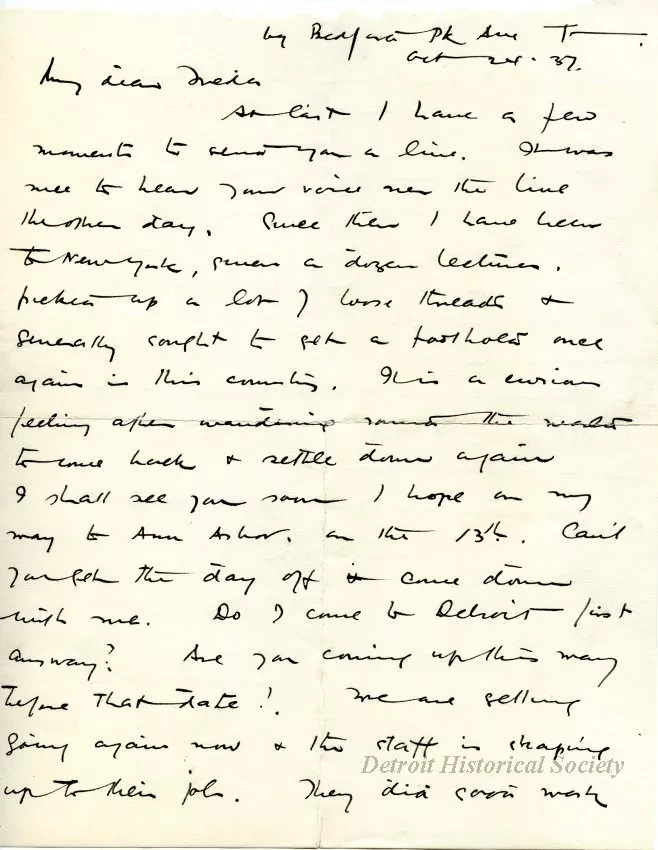 by Bedford Pk Ave T
Oct 24. 37.
My dear Frieda
At last I have a few
moments to send you a line. It was
nice to hear your voice over the line
the other day. Since then I have been
to New York, given a dozen lectures,
picked up a lot of loose threads &
generally sought to get a foothold once
again in this country. It is a curious
feeling after wandering round the world
to come back & settle down again
I shall see you soon I hope on my
way to Ann Arbor, on the 13th. Can't
you get the day off & come down
with me. Do I come to Detroit first
anyway? Are you coming up this way
before that date? We are getting
going again now & the staff is shaping
up to their job. They did good work
Detroit Historical Society